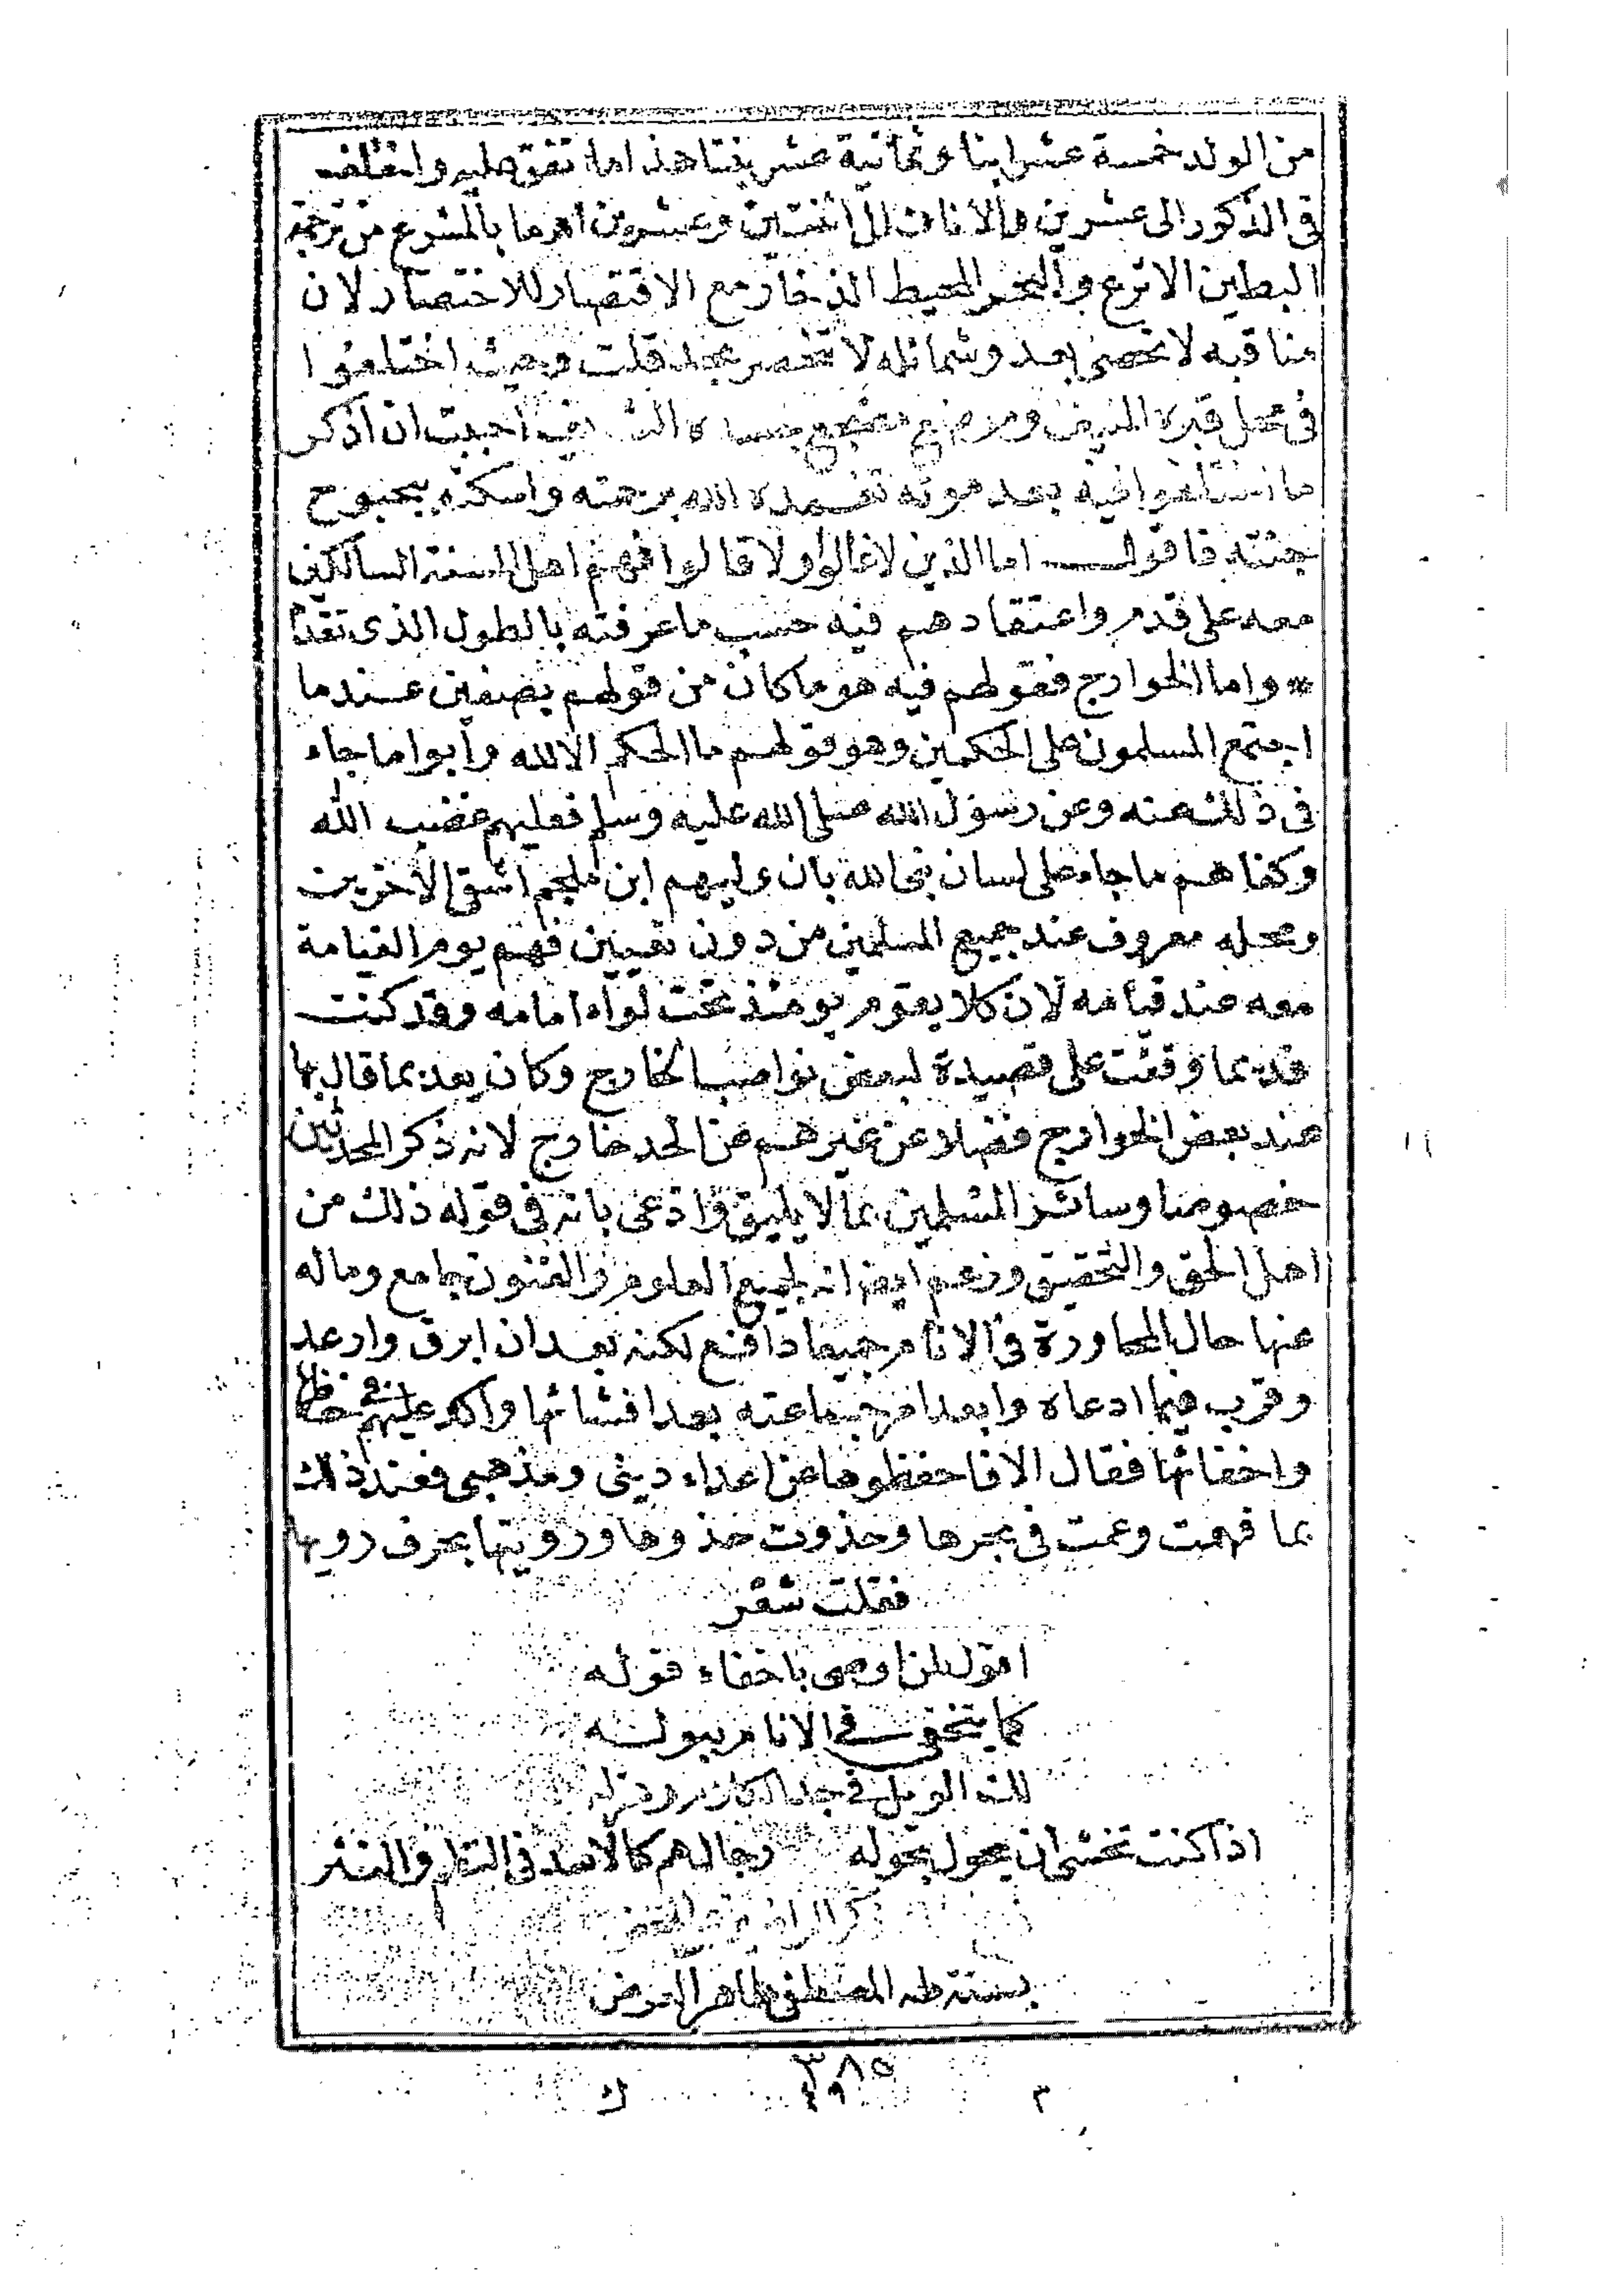 من الولد خمسة عشر ابنا وثمانية عشر بنتا هذا ما تفق عليه واختلف
فى الذكور الى عشرين والاناث الى اثنتين وعشرين اهـ ما بالمشرع من ترجمة
البطين الانزع والبحر المحيط الذخار مع الاقتصار للاختصار لان
مناقبه لا تحصى بعد وشمائله لا تنحصر بحد قلت وحيث اختلفوا
فى محل قبره المنيف وموضع مضجع جسده الشريف احببت ان اذكر
ما اختلفوا فيه بعد موته تغمده الله برحمته واسكنه بحبوح
جنته فاقول اما الذين لا غالوا ولا قالوا فهم اهل السنة السالكين
معه على قدم واعتقادهم فيه حسب ما عرفته بالطول الذى تقدم
* واما الخوارج فقولهم فيه هو ما كان من قولهم بصفين عندما
اجتمع المسلمون على الحكمين وهو قولهم ما الحكم الا لله وابوا ما جاء
فى ذلك عنه وعن رسول الله صلى الله عليه وسلم فعليهم غضب الله
وكفاهم ما جاء على لسان نبى الله بان وليهم ابن ملجم اشقى الآخرين
ومحله معروف عند جميع المسلمين من دون تعيين فهم يوم القيامة
معه عند قيامه لان كلا يقوم يومئذ تحت لواء امامه وقد كنت
قديما وقفت على قصيدة لبعض نواصب الخارج وكان يعد بما قال بها
عند بعض الخوارج فضلا عن غيرهم عن الحد خارج لانه ذكر المحدثين
خصوصا وسائر المسلمين بما لا يليق وادعى بانه فى قوله ذلك من
اهل الحق والتحقيق وزعم ايضا انه لجميع العلوم والفنون جامع وماله
عنها حال المحاورة فى الانام جميعا دافع لكنه بعد ان ابرق وارعد
وقرب فيما ادعاه وابعد امر جماعته بعد افشائها واكد عليهم فى حفظها
واخفائها فقال الا فاحفظوها عن اعداء دينى ومذهبى فعند ذلك
بما فهمت وعمت فى بحرها وحذوت حذوها ورويتها بحرف رويها
فقلت شعر
اقول لمن اوصى باخفاء قوله
كما يتخفى فى الانام ببوله
لك الويل فى
اذا كنت تخشى ان يحول بحوله رجالهم كالاسد فى النظم والنثر
بسنة طه المصطفى طاهر العرض
٣٨٥
٤٩
ك
م